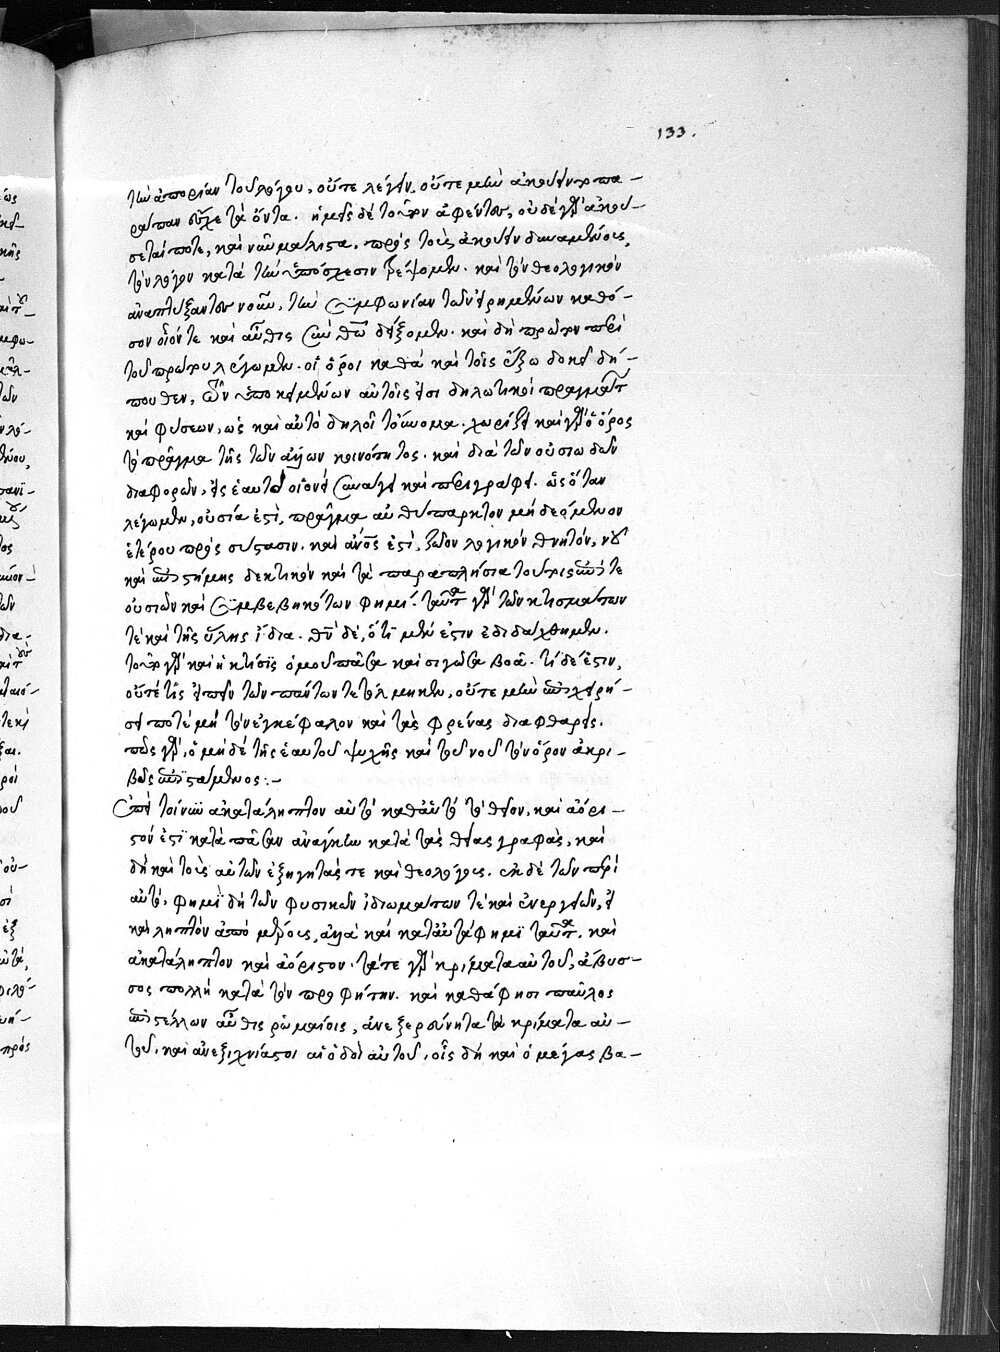 133.
τὴν ἀπορίαν τοῦ λόγου, οὔτε λέγειν οὔτε μὴν ἀκούειν τὸ πα-
ράπαν εἶχε τὰ ὄντα. ἡμεῖς δὲ τοῦτον ἀφέντες, οὐδὲ γὰρ ἀκού-
σεταί ποτε, καὶ νῦν μάλιστα. πρὸς τοὺς ἀκούειν δυναμένους,
τὸν λόγον κατὰ τὴν ὑπόσχεσιν τρέψομεν. καὶ τὸν θεολογικὸν
ἀναπτύξαντες νοῦν, τὴν συμφωνίαν τῶν εἰρημένων καθό-
σον οἷόν τε καὶ αὖθις σὺν θεῷ δείξομεν. καὶ δὴ πρῶτον περὶ
τοῦ πρώτου λέγωμεν. οἱ ὅροι καθὰ καὶ τοῖς ἔξω δοκεῖ δή-
πουθεν, τῶν ὑποκειμένων αὐτοῖς εἰσι δηλωτικοὶ πραγμάτων
καὶ φύσεων, ὡς καὶ αὐτὸ δηλοῖ τοὔνομα. χωρίζει καὶ γὰρ ὁ ὅρος
τὸ πρᾶγμα τῆς τῶν ἄλλων κοινότητος. καὶ διὰ τῶν οὐσιωδῶν
διαφορῶν, εἰς ἑαυτὸ οἱονεὶ συνάγει καὶ περιγράφει. ὡς ὅταν
λέγωμεν, οὐσία ἐστὶ, πρᾶγμα αὐθύπαρκτον μὴ δεόμενον
ἑτέρου πρὸς σύστασιν. καὶ ἄνθρωπός ἐστι, ζῶον λογικὸν θνητὸν, νοῦ
καὶ ἐπιστήμης δεκτικὸν καὶ τὰ παραπλήσια τούτοις ἐπί τε
οὐσιῶν καὶ συμβεβηκότων φημί. ταῦτα γὰρ τῶν κτισμάτων
τὲ καὶ τῆς ὕλης ἴδια. θεὸν δὲ, ὅτι μέν ἐστιν ἐδιδάχθημεν.
τοῦτο γὰρ καὶ ἡ κτίσις ὁμοῦ πᾶσα καὶ σιγῶσα βοᾷ. τί δέ ἐστιν,
οὔτέ τις εἰπεῖν τῶν πάντων τετόλμηκεν, οὔτε μὴν ἐπιχειρή-
σει ποτὲ μὴ τὸν ἐγκέφαλον καὶ τὰς φρένας διαφθαρείς.
πῶς γὰρ, ὁ μὴ δὲ τῆς ἑαυτοῦ ψυχῆς καὶ τοῦ νοῦ τὸν ὅρον ἀκρι-
βῶς ἐπιστάμενος :-
Ἐπεὶ τοίνυν ἀκατάληπτον αὐτὸ καθ' αὑτὸ τὸ θεῖον, καὶ ἀόρι-
στόν ἐστι κατὰ πᾶσαν ἀνάγκην κατὰ τὰς θείας γραφὰς, καὶ
δὴ καὶ τοὺς αὐτῶν ἐξηγητάς τε καὶ θεολόγους. ἐκ δὲ τῶν περὶ
αὐτὸ, φημὶ δὴ τῶν φυσικῶν ἰδιωμάτων τὲ καὶ ἐνεργειῶν, εἰ
καὶ ληπτὸν ἀπὸ μέρους, ἀλλὰ καὶ κατ' αὐτὰ φημὶ ταῦτα. καὶ
ἀκατάληπτον καὶ ἀόριστον. τά τε γὰρ κρίματα αὐτοῦ, ἄβυσ-
σος πολλὴ κατὰ τὸν προφήτην. καὶ καθά φησι παῦλος
ἐπιστέλλων αὖθις ῥωμαίοις, ἀνεξερεύνητα τὰ κρίματα αὐ-
τοῦ, καὶ ἀνεξιχνίαστοι αἱ ὁδοὶ αὐτοῦ. οἷς δὴ καὶ ὁ μέγας βα-